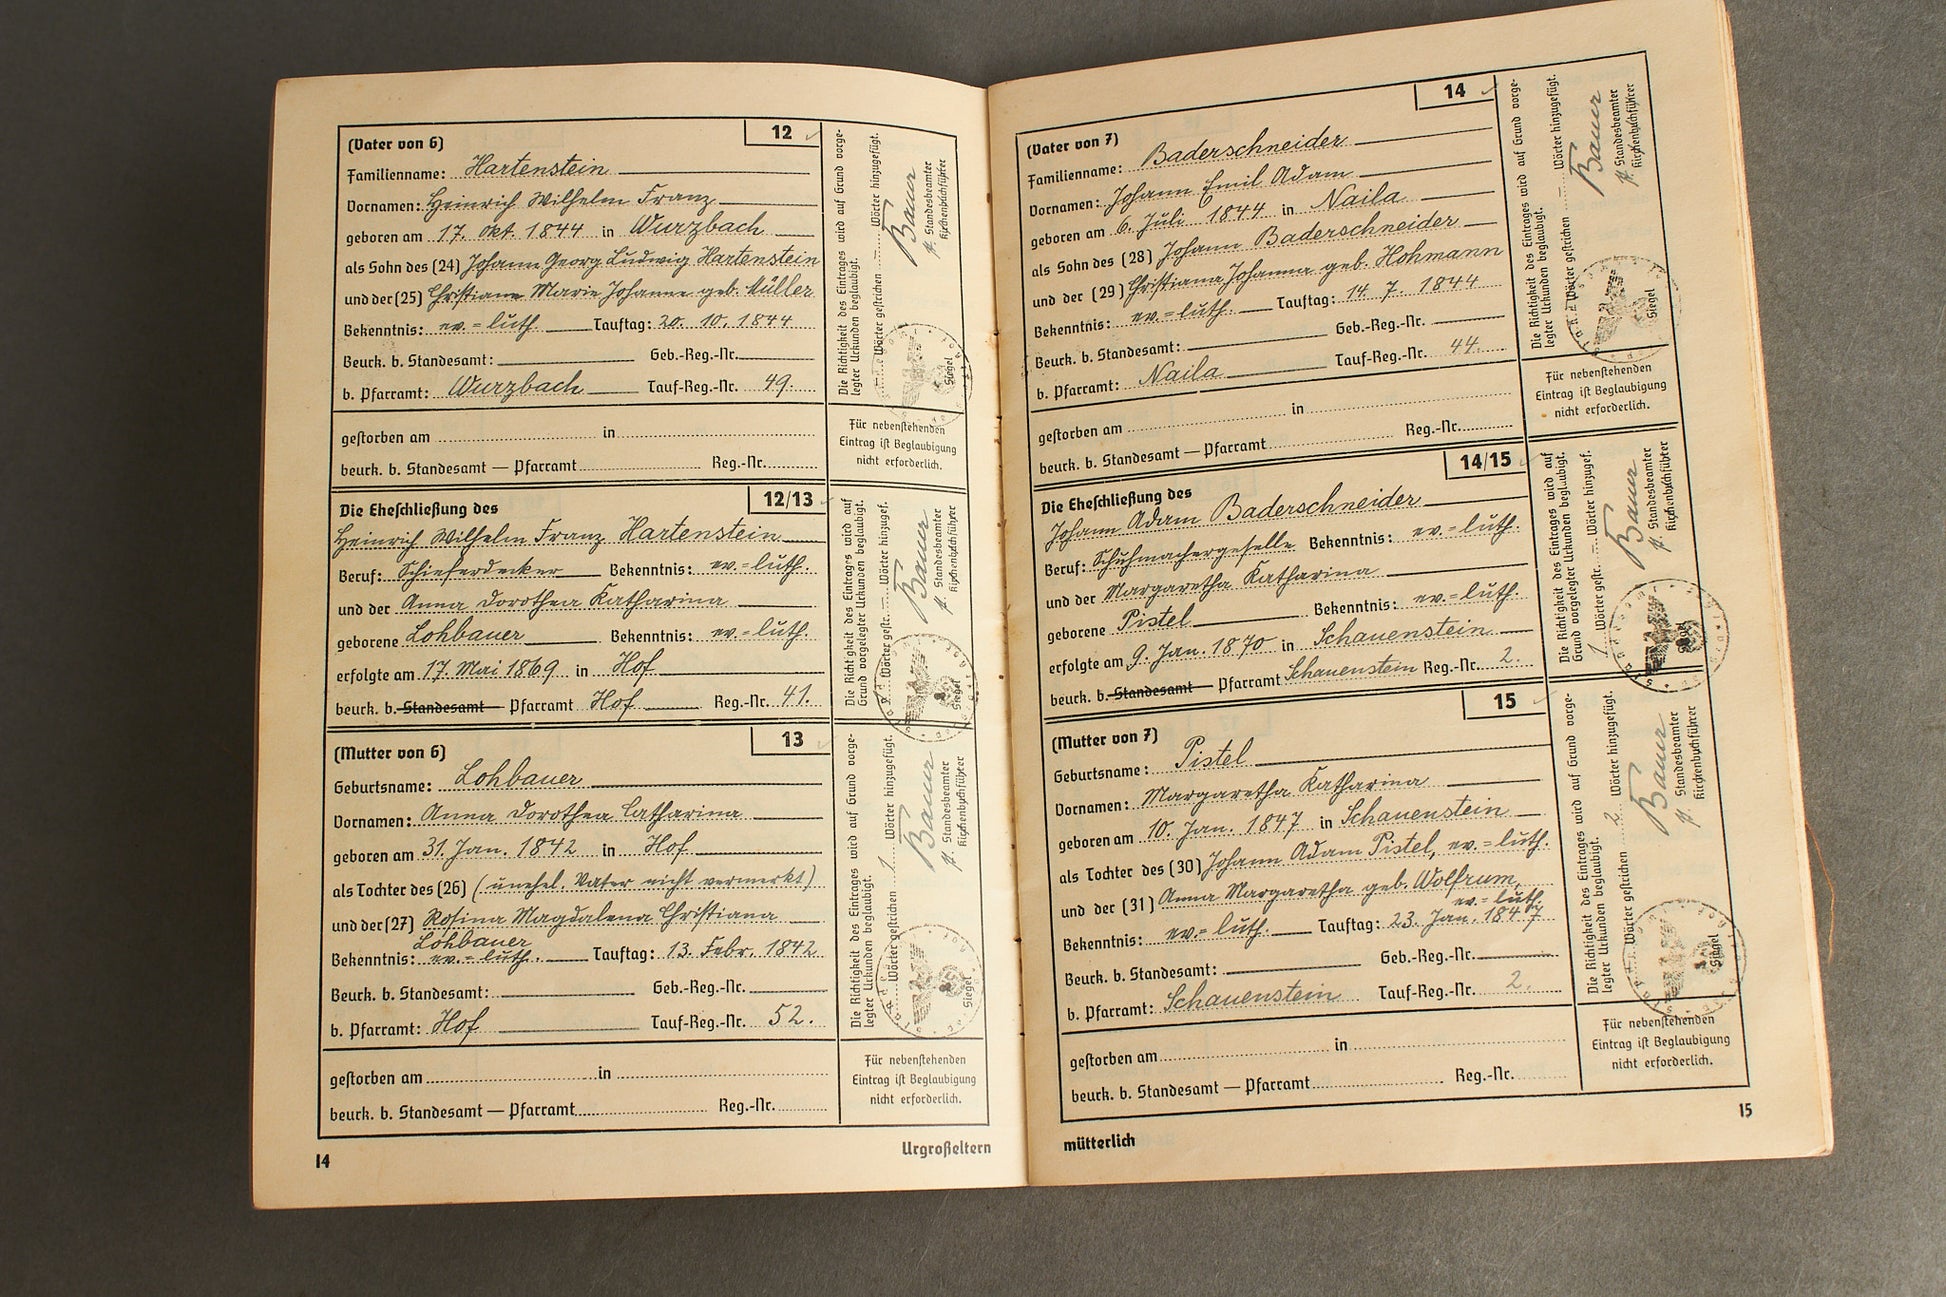 12
(Vater von 6)
Familienname: Hartenstein
Vornamen: Heinrich Wilhelm Franz
geboren am 17. Okt. 1844 in Wurzbach
als Sohn des (24) Johann Georg Ludwig Hartenstein
und der (25) Christiane Marie Johanne geb. Müller
Bekenntnis: ev.=luth. Tauftag: 20. 10. 1844
Beurk. b. Standesamt: Geb.-Reg.-Nr.
b. Pfarramt: Wurzbach Tauf-Reg.-Nr. 49.
gestorben am in
beurk. b. Standesamt — Pfarramt Reg.-Nr.
Die Richtigkeit des Eintrages wird auf Grund vorge-
legter Urkunden beglaubigt.
Wörter gestrichen Wörter hinzugefügt.
Bauer
Standesbeamter
Kirchenbuchführer
Siegel
Für nebenstehenden
Eintrag ist Beglaubigung
nicht erforderlich.
12/13
Die Eheschließung des
Heinrich Wilhelm Franz Hartenstein
Beruf: Schieferdecker Bekenntnis: ev.=luth.
und der Anna Dorothea Katharina
geborene Lohbauer Bekenntnis: ev.=luth.
erfolgte am 17. Mai 1869 in Hof
beurk. b. Standesamt — Pfarramt Hof Reg.-Nr. 41.
Die Richtigkeit des Eintrages wird auf
Grund vorgelegter Urkunden beglaubigt.
Wörter gestr. Wörter hinzugef.
Bauer
Standesbeamter
Kirchenbuchführer
Siegel
13
(Mutter von 6)
Geburtsname: Lohbauer
Vornamen: Anna Dorothea Catharina
geboren am 31. Jan. 1842 in Hof
als Tochter des (26) (unehel. Vater nicht vermerkt)
und der (27) Rosina Magdalena Christiana
Lohbauer
Bekenntnis: ev.=luth. Tauftag: 13. Febr. 1842
Beurk. b. Standesamt: Geb.-Reg.-Nr.
b. Pfarramt: Hof Tauf-Reg.-Nr. 52.
gestorben am in
beurk. b. Standesamt — Pfarramt Reg.-Nr.
Die Richtigkeit des Eintrages wird auf Grund vorge-
legter Urkunden beglaubigt.
Wörter gestrichen 1 Wörter hinzugefügt.
Bauer
Standesbeamter
Kirchenbuchführer
Siegel
Für nebenstehenden
Eintrag ist Beglaubigung
nicht erforderlich.
14
Urgroßeltern
14
(Vater von 7)
Familienname: Baderschneider
Vornamen: Johann Emil Adam
geboren am 6. Juli 1844 in Naila
als Sohn des (28) Johann Baderschneider
und der (29) Christiana Johanna geb. Hohmann
Bekenntnis: ev.=luth. Tauftag: 14. 7. 1844
Beurk. b. Standesamt: Geb.-Reg.-Nr.
b. Pfarramt: Naila Tauf-Reg.-Nr. 44.
gestorben am in
beurk. b. Standesamt — Pfarramt Reg.-Nr.
Die Richtigkeit des Eintrages wird auf Grund vorge-
legter Urkunden beglaubigt.
Wörter gestrichen Wörter hinzugefügt.
Bauer
Standesbeamter
Kirchenbuchführer
Siegel
Für nebenstehenden
Eintrag ist Beglaubigung
nicht erforderlich.
14/15
Die Eheschließung des
Johann Adam Baderschneider
Beruf: Schuhmachergeselle Bekenntnis: ev.=luth.
und der Margaretha Katharina
geborene Pistel Bekenntnis: ev.=luth.
erfolgte am 9. Jan. 1870 in Schauenstein
beurk. b. Standesamt — Pfarramt Schauenstein Reg.-Nr. 2.
Die Richtigkeit des Eintrages wird auf
Grund vorgelegter Urkunden beglaubigt.
1 Wörter gestr. Wörter hinzugef.
Bauer
Standesbeamter
Kirchenbuchführer
Siegel
15
(Mutter von 7)
Geburtsname: Pistel
Vornamen: Margaretha Katharina
geboren am 10. Jan. 1847 in Schauenstein
als Tochter des (30) Johann Adam Pistel, ev.=luth.
und der (31) Anna Margaretha geb. Wolfrum,
ev.=luth.
Bekenntnis: ev.=luth. Tauftag: 23. Jan. 1847
Beurk. b. Standesamt: Geb.-Reg.-Nr.
b. Pfarramt: Schauenstein Tauf-Reg.-Nr. 2.
gestorben am in
beurk. b. Standesamt — Pfarramt Reg.-Nr.
Die Richtigkeit des Eintrages wird auf Grund vorge-
legter Urkunden beglaubigt.
Wörter gestrichen 2 Wörter hinzugefügt.
Bauer
Standesbeamter
Kirchenbuchführer
Siegel
Für nebenstehenden
Eintrag ist Beglaubigung
nicht erforderlich.
mütterlich
15